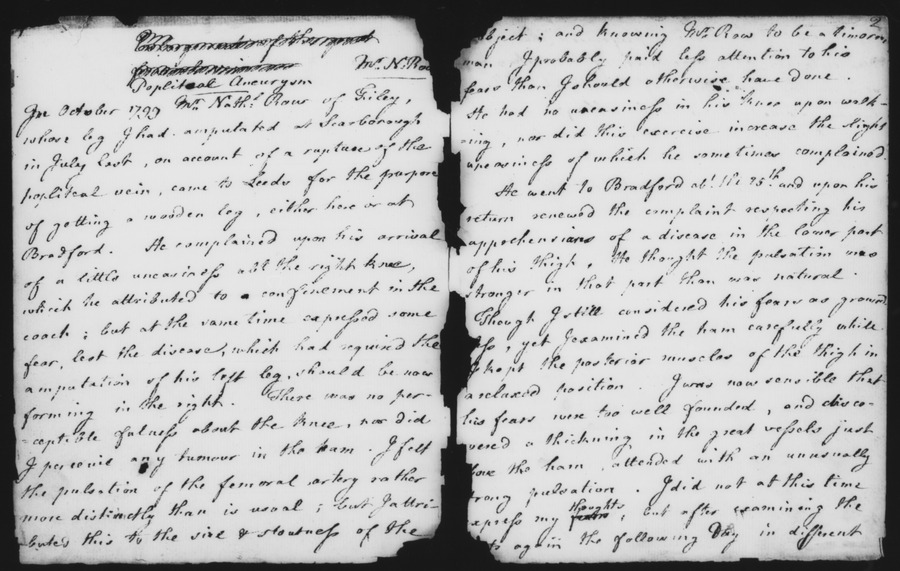 Popliteal Aneurysm
Mr. N. Row
In October 1799 Mr. Nathl. Rowe of Filey,
whose leg I had amputated at Scarborough
in July last, on account of a rupture of the
popliteal vein, came to Leeds for the purpose
of getting a wooden leg, either here or at
Bradford. He complained upon his arrival
of a little uneasiness abt the right knee,
which he attributed to a confinement in the
coach; but at the same time expressed some
fear, lest the disease, which had required the
amputation of his left leg, should be now
forming in the right. There was no per-
-ceptible fulness about the knee, nor did
I perceive any tumour in the ham. I felt
the pulsation of the femoral artery rather
more distinctly than is usual; but I attri-
buted this to the size & stoutness of the
2
subject; and knowing Mr. Row to be a timorous
man I probably paid less attention to his
fears than I should otherwise have done.
He had no uneasiness in his knee upon walk-
ing, nor did this exercise increase the slight
uneasiness of which he sometimes complained.
He went to Bradford abt. the 25th. and upon his
return renewed the complaint respecting his
apprehensions of a disease in the lower part
of his thigh. He thought the pulsation was
stronger in that part than was natural.
Though I still considered his fears as ground
less, yet I examined the ham carefully while
I kept the posterior muscles of the thigh in
a relaxed position. I was now sensible that
his fears were too well founded, and disco-
vered a thickning in the great vessels just
bove the ham, attended with an unusually
trong pulsation. I did not at this time
xpress my thoughts; but after examining the
again the following Day in different